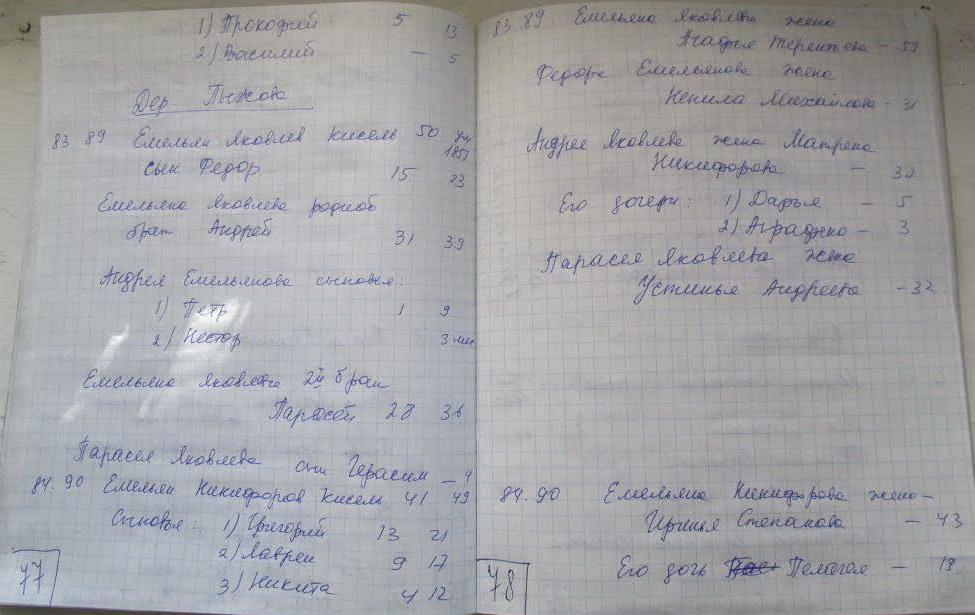 1) Прокофий 5 13
2) Василий — 5
Дер Пыжова
83 89 Емельян Яковлев Кисель 50 ум
1851
сын Федор 15 23
Емельяна Яковлева родной
брат Андрей 31 39
Андрея Емельянова сыновья:
1) Петр 1 9
2) Нестор 3 мес
Емельяна Яковлева 2й брат
Парфей 28 36
Парфея Яковлева сын Герасим — 4
84.90 Емельян Никифоров Кисель 41 49
Сыновья: 1) Григорий 13 21
2) Лаврен 9 17
3) Никита 4 12
77
83 89 Емельяна Яковлева жена
Агафья Терентьева - 52
Федора Емельянова жена
Ненила Михайлова - 31
Андрея Яковлева жена Матрена
Никифорова — 37
Его дочери: 1) Дарья — 5
2) — 3
Парфея Яковлева жена
Устинья Андреева - 32
84.90 Емельяна Никифорова жена -
Иринья Степанова — 43
Его дочь Пелагея — 19
78